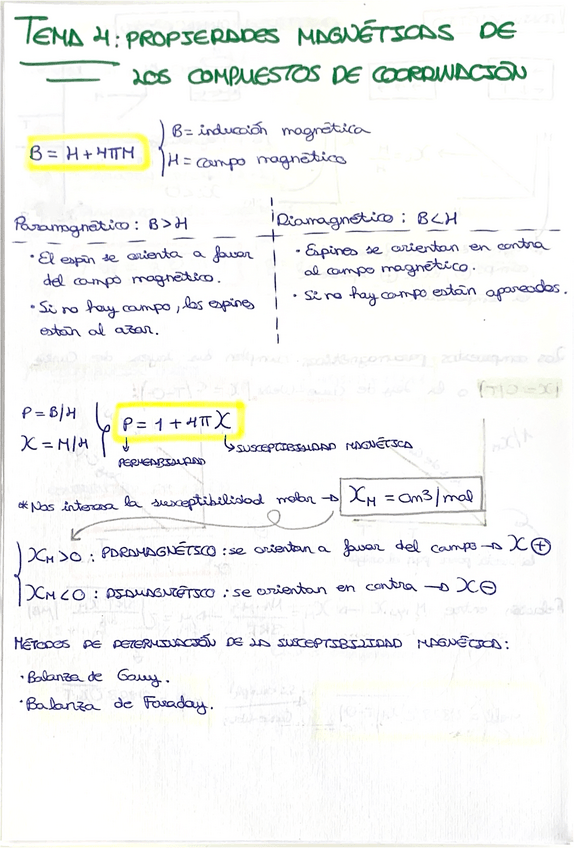 TEMA 4: PROPIEDADES MAGNÉTICAS DE
LOS COMPUESTOS DE COORDINACIÓN
B = H + 4πM
B = inducción magnética
H = campo magnético
Paramagnético: B > H
· El espín se orienta a favor
del campo magnético.
· Si no hay campo, los espines
están al azar.
Diamagnético: B < H
· Espines se orientan en contra
al campo magnético.
· Si no hay campo están apareados.
P = B/H
X = M/H
P = 1 + 4πX
PERMEABILIDAD
SUSCEPTIBILIDAD MAGNÉTICA
*Nos interesa la susceptibilidad molar → XM = cm3/mol
XM > 0: PARAMAGNÉTICO: se orientan a favor del campo → X ⊕
XM < 0: DIAMAGNÉTICO: se orientan en contra → X ⊖
MÉTODOS DE DETERMINACIÓN DE LA SUSCEPTIBILIDAD MAGNÉTICA:
· Balanza de Gouy.
· Balanza de Faraday.